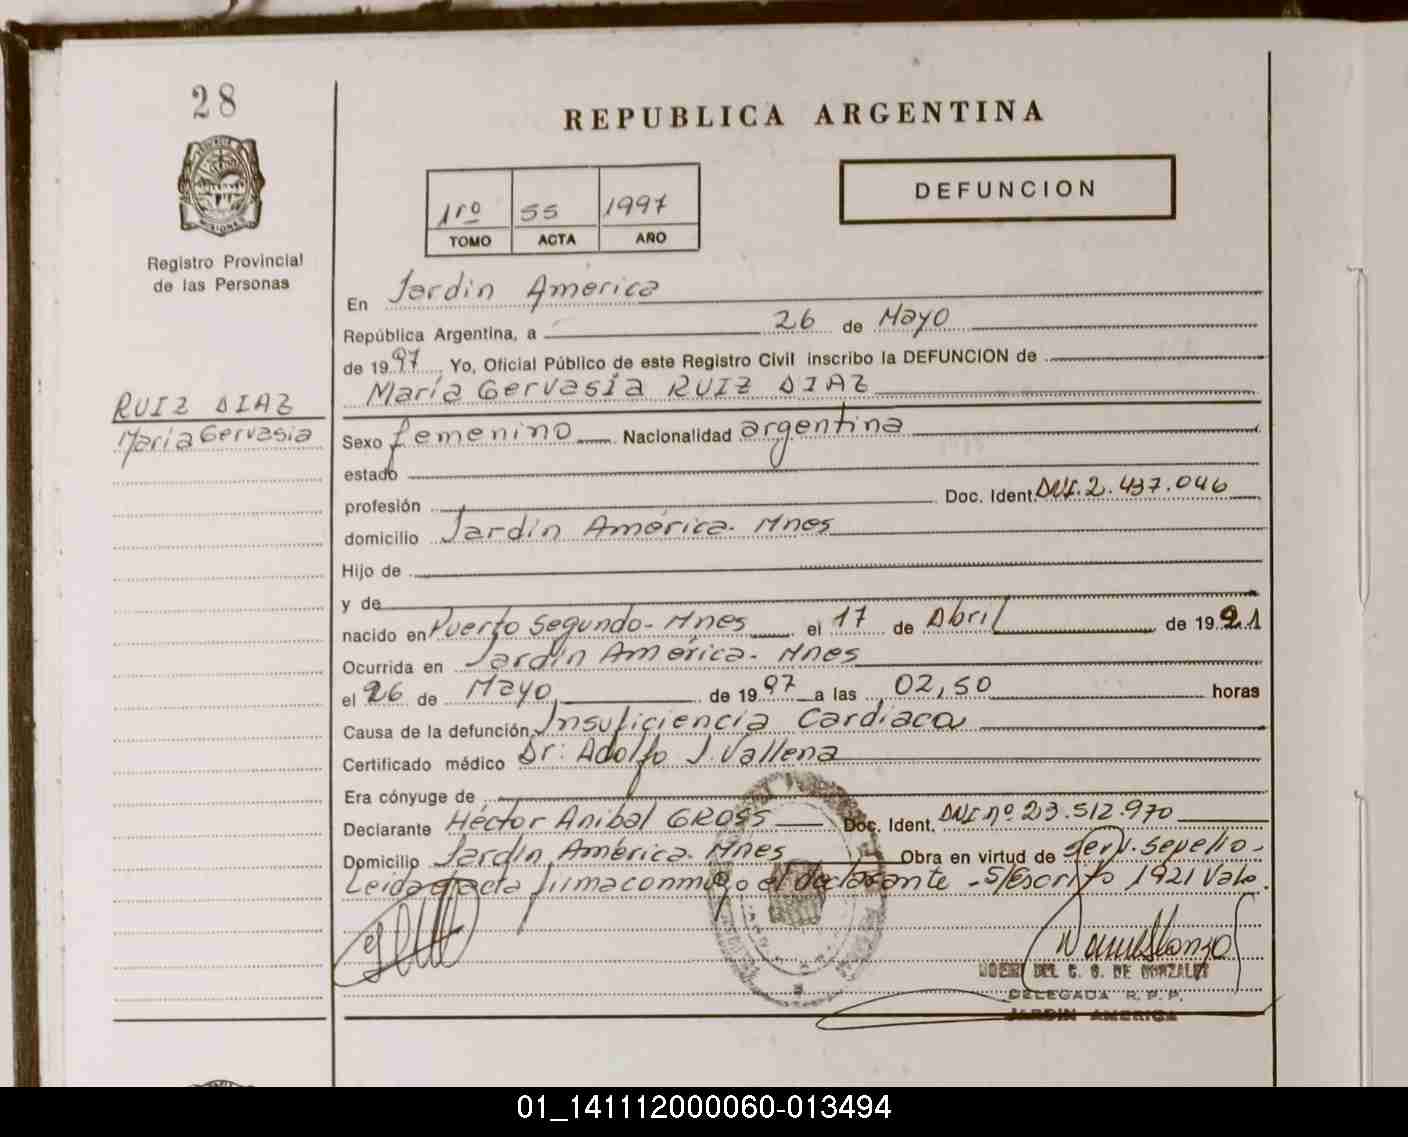 28
REPUBLICA ARGENTINA
DEFUNCION
1ro 55 1997
TOMO ACTA AÑO
Registro Provincial
de las Personas
En Jardin América
República Argentina, a 26 de Mayo
de 1997. Yo, Oficial Público de este Registro Civil inscribo la DEFUNCION de
María Gervasia RUIZ DIAZ
RUIZ DIAZ
María Gervasia
Sexo femenino Nacionalidad argentina
estado
profesión Doc. Ident. DNI. 2.437.046
domicilio Jardín América. Mnes
Hijo de
y de
nacido en Puerto Segundo - Mnes el 17 de Abril de 1921
Ocurrida en Jardín América. Mnes
el 26 de Mayo de 1997 a las 02,50 horas
Causa de la defunción Insuficiencia Cardíaca
Certificado médico Dr: Adolfo J. Vallena
Era cónyuge de
Declarante Héctor Anibal GROSS Doc. Ident. DNI nº 23.512.970
Domicilio Jardín América. Mnes Obra en virtud de Serv. Sepelio.
Leida el acta firma conmigo el declarante - S/Escrito 1921 Vale.
DEL C. S. DE GONZALEZ
DELEGADA R. P. P.
JARDIN AMERICA
01_141112000060-013494